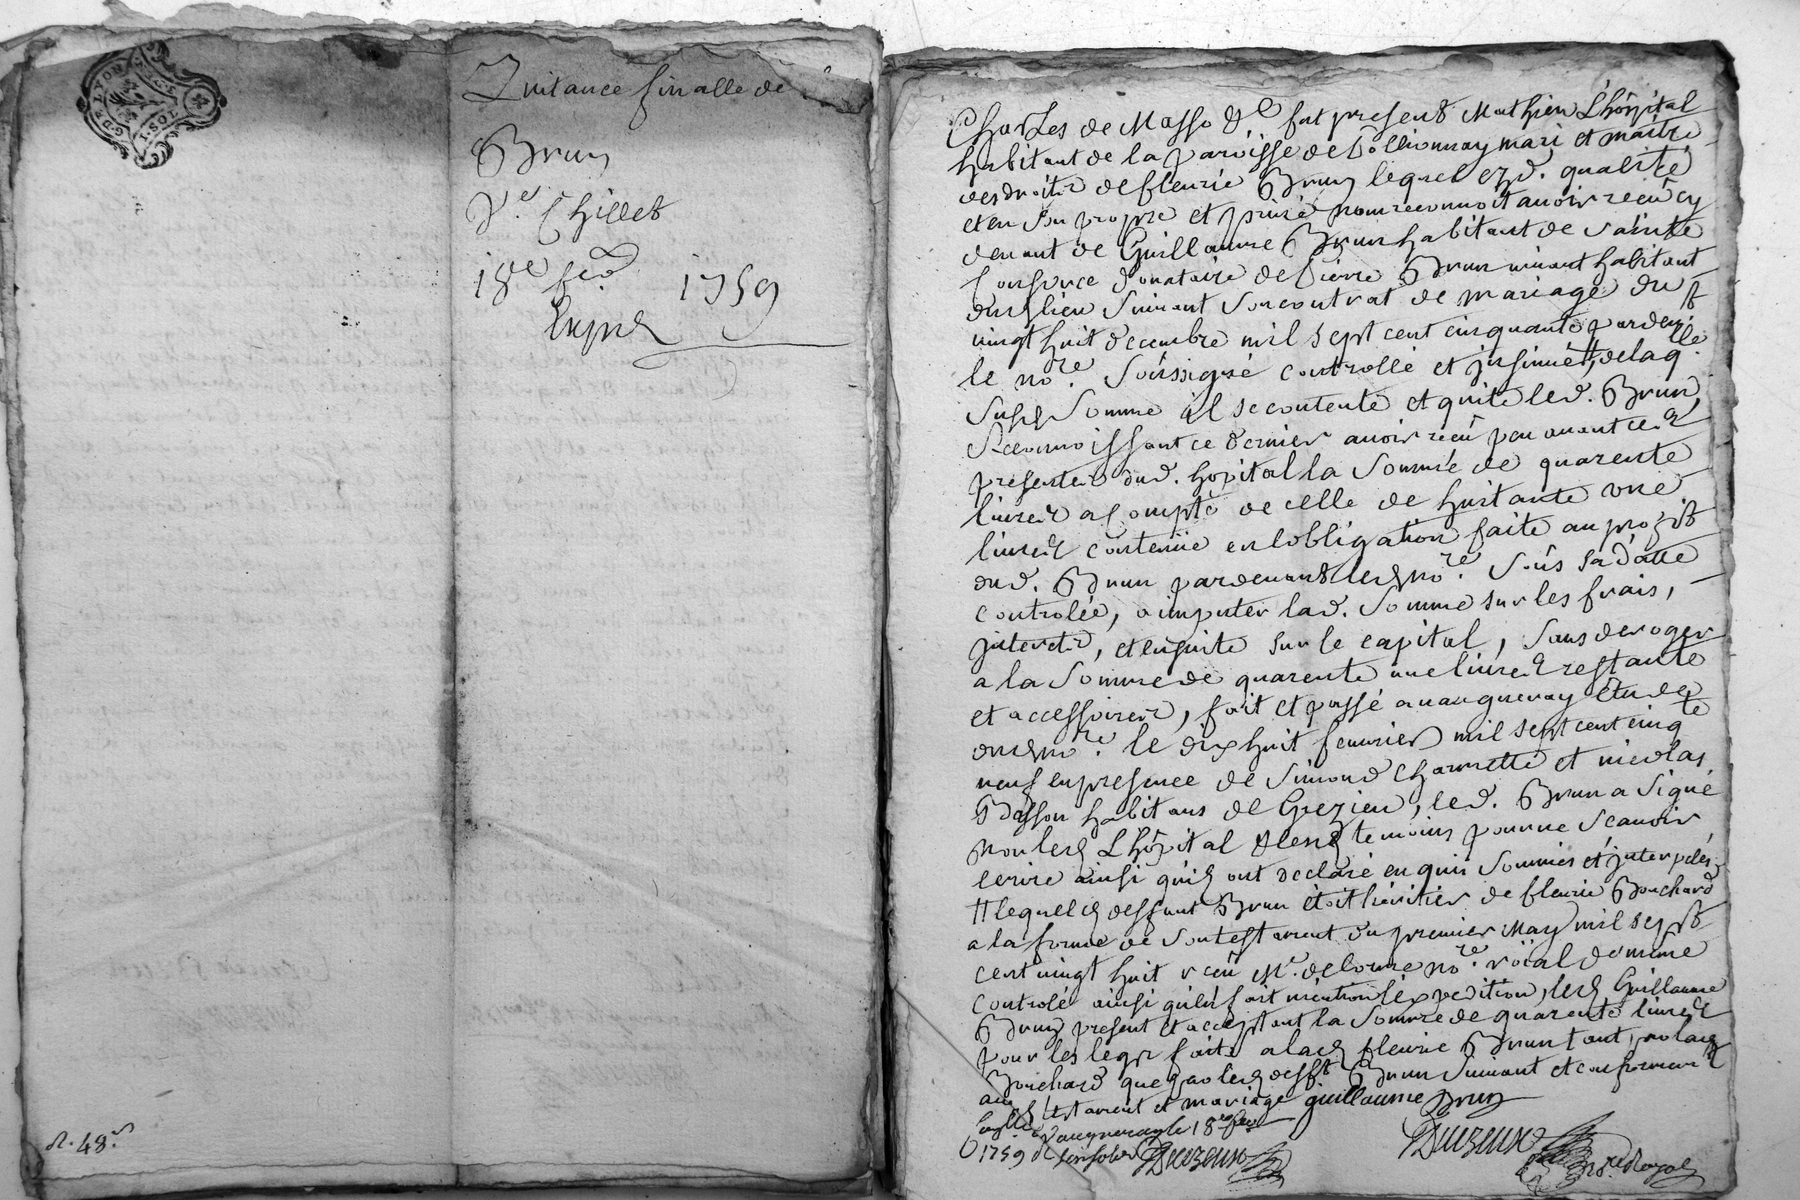 G.D.LYON
1.SOL
Quitance finalle de
Brun
Chillet
18e fev. 1759
Exped
R. 48 s
Charles de Masso &a fut present Mathieu L'hôpital
habitant de la paroisse de Pollionnay mari et maitre
des droits de fleurie Brun lequel eyd. qualité
et en son propre et privé nom reconnoit avoir reçeu cy
devant de Guillaume Brun habitant de sainte
Consorce donataire de Pierre Brun vivant habitant
dud lieu suivant son contrat de mariage du
vingt huit decembre mil sept cent cinquante pardevt.
le nore. soussigné controllé et insinué # de laqlle.
susd somme il se contente et quite led. Brun,
Reconnoissant ce dernier avoir reçeu peu avant ces
presentes dud. hopital la somme de quarente
livres a compte de celle de huitante une
livres contenüe en l'obligation faite au profit
dud. Brun pardevant led nore. sous sa datte
controlée, a imputer lad. somme sur les frais,
interets, et ensuite sur le capital, sans deroger
a la somme de quarente une livres restante
et accessoires, fait et passé a vaugneray étude
dud nore. le dix huit fevrier mil sept cent cinqte
neuf en presence de Simond Charrette et nicolas
Basson habitans de Grezieu, led. Brun a signé
non led L'hôpital & les temoins pour ne scavoir
ecrire ainsi qu'ils ont declaré enquis sommés et interpelés
# lequel deffunt Brun étoit héritier de fleurie Bouchard
a la forme de son testament du premier May mil sept
cent vingt huit reçeu Me. delorme nore. roïal deüment
controlé ainsi qu'en fait mention l'expedition, led Guillaume
Brun present et acceptant la somme de quarente livres
pour les legs faits a lad fleurie Brun tant par lad
Bouchard que par led defft Brun suivant et conformemt
aux testament et mariage guillaume Brun
a vaugneray le 18e fevr
1759 Duczeux
Duczeux
nore Royal